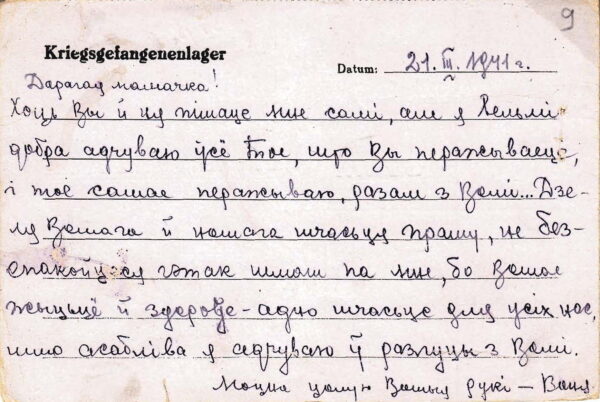 9
Kriegsgefangenenlager
Datum: 21. III. 1941 г.
Дарагая мамачка!
Хоць Вы й ня пішаце мне самі, але я вельмі
добра адчуваю ўсё тое, што Вы перажываеце,
і тое самае перажываю, разам з Вамі... Дзе-
ля Вашага й нашага шчасьця прашу, не без-
спакойцеся гэтак шмат па мне, бо Вашае
жыцьцё й здароўе - адно шчасьце для ўсіх нас,
што асабліва я адчуваю ў разлуцы з Вамі.
Моцна цалую Вашыя рукі — Ваня